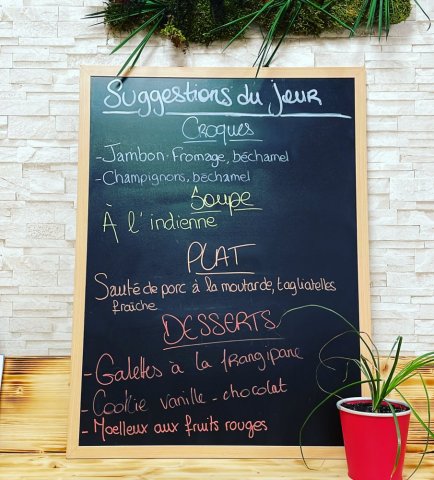 Suggestions du jour
Croques
- Jambon. Fromage, béchamel
- Champignons, béchamel
Soupe
À l'indienne
PLAT
Sauté de porc à la moutarde, tagliatelles
fraîche
DESSERTS
- Galettes à la frangipane
- Cookie vanille - chocolat
- Moelleux aux fruits rouges